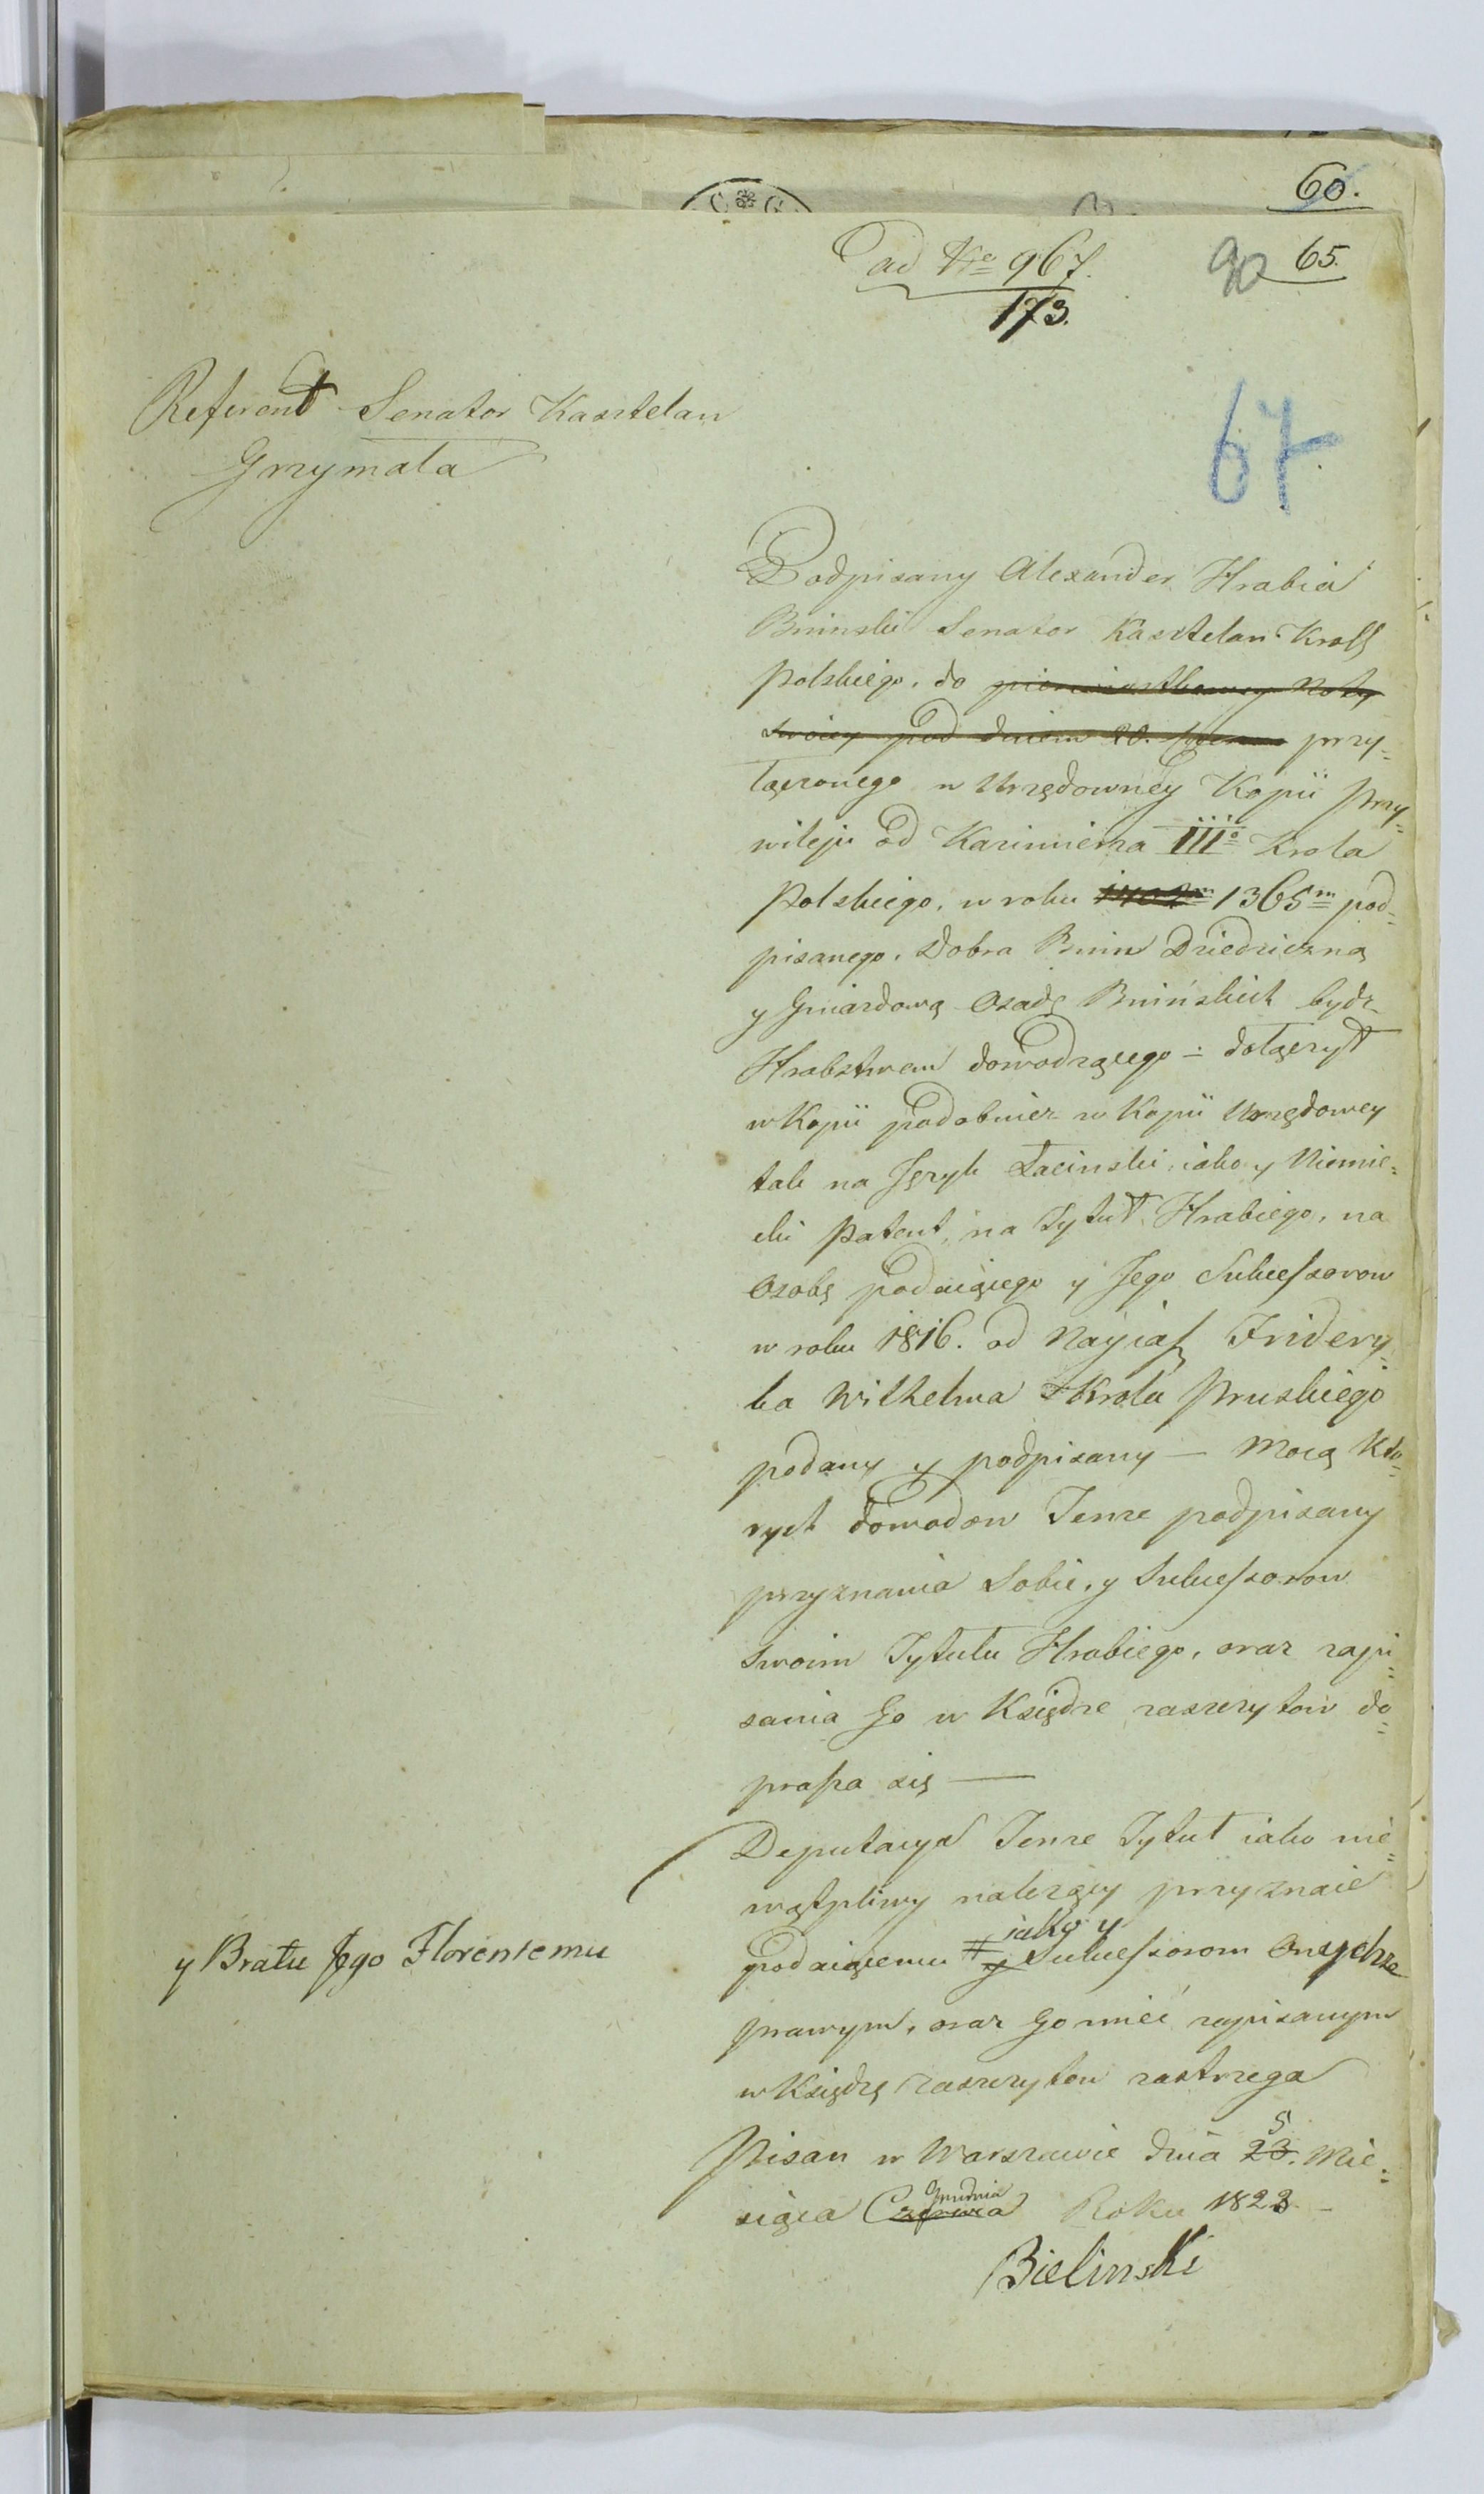 60.
ad No 967.
173.
90
65.
67.
Referent Senator Kasztelan
Grzymała
Podpisany Alexander Hrabia
Bninski Senator Kasztelan Króls
Polskiego, do pierwiastkowey Noty
swoiey pod dniem 20. przy=
łączonego w Urzędowney Kopii Przy=
wileju od Kazimierza III° Krola
Polskiego, w roku 1402m 1365m pod=
pisanego, Dobra Bnin Dziedziczną
y Gniazdową Osadę Bnińskich bydz
Hrabstwem dowodzącego – dołączył
w Kopii podobnież w Kopii Urzędowey
tak na Język Łacinski iako y Niemie=
cki Patent, na Tytuł Hrabiego, na
Osobę podaiącego y Jego Sukcessorow
w roku 1816. od Nayiaś Fridery=
ka Wilhelma Krola Pruskiego
podany y podpisany — Mocą Któ=
rych dowodow Tenże podpisany
przyznania Sobie, y Sukcessorow
swoim Tytułu Hrabiego, oraz zapi=
sania Go w Księdze zaszczytow do=
prasza się —
Deputacya Tenże Tytuł iako nie=
wątpliwy należący przyznaie
iako y
podaiącemu # y Sukcessorom Onychże
y Bratu Jego Florentemu
prawym, oraz Go mieć zapisanym
w Księdzę zaszczytow zastrzega
5
Pisan w Warszawie dnia 23. Mie=
Grudnia
siąca Czerwca Roku 1823 –
Bielinski